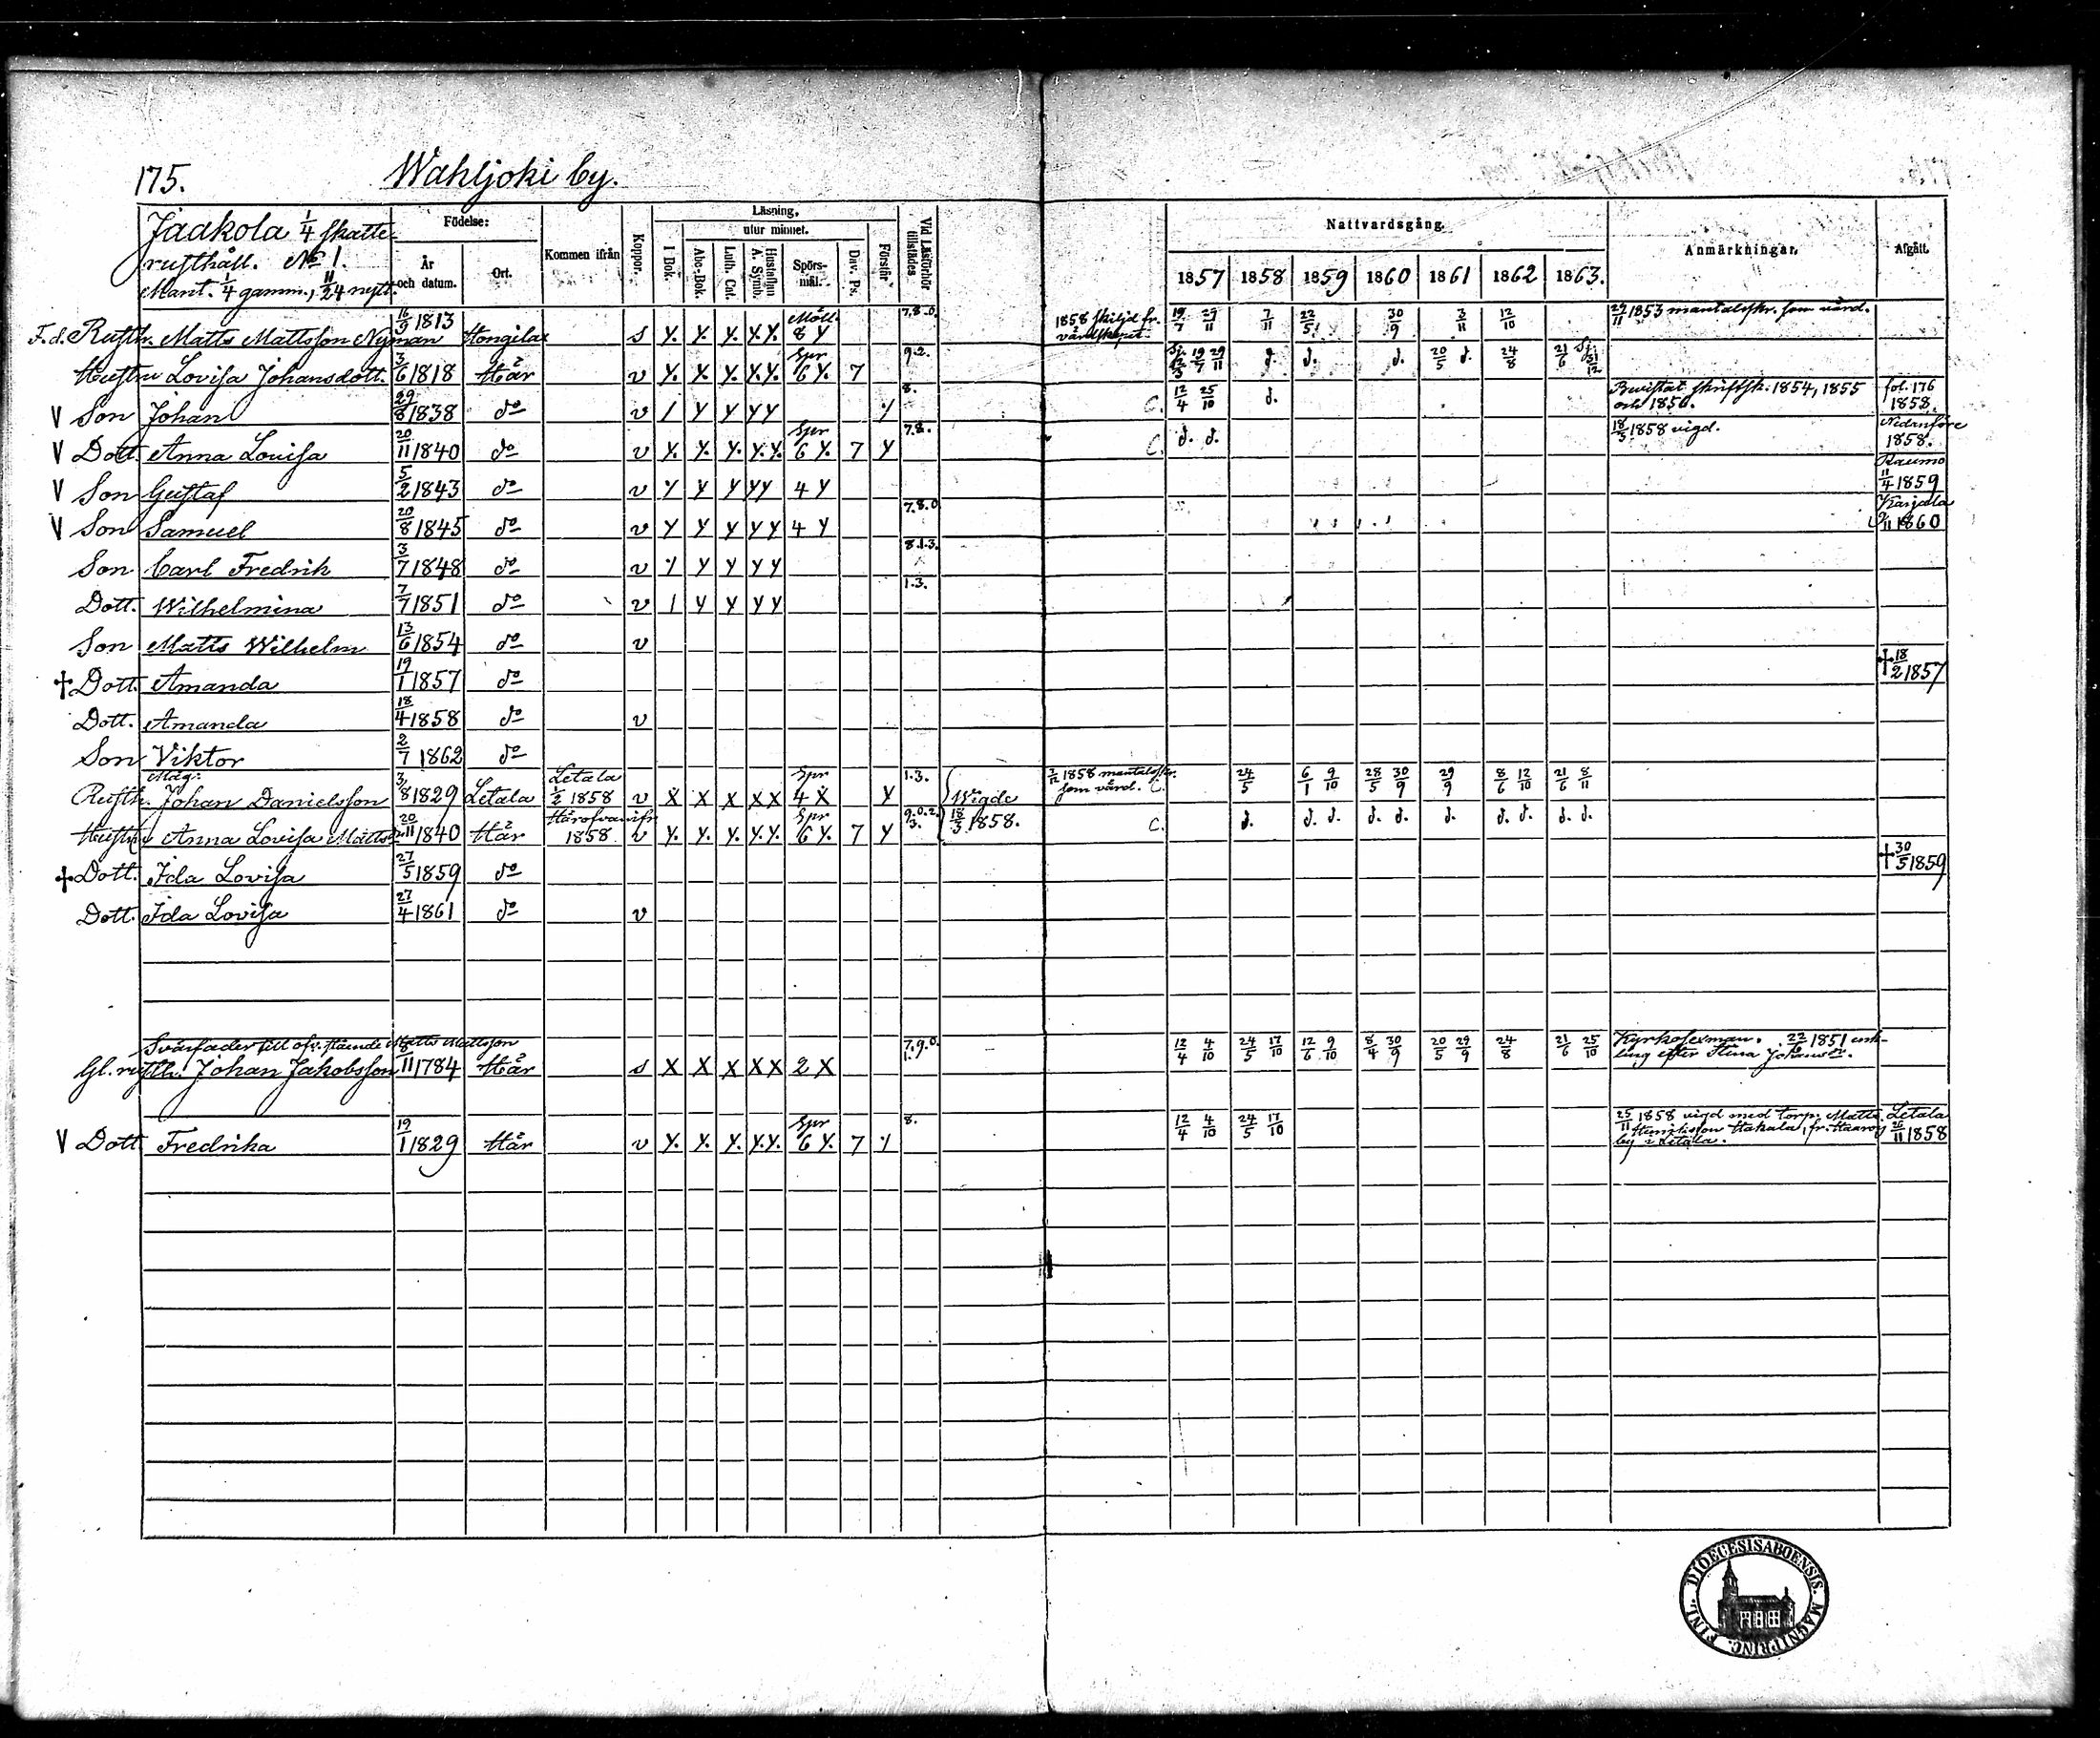 175. Wahljoki by.
Jaakola 1/4 skatte
rusthåll. No 1.
Mant. 1/4 gamm., 11/24 nytt.
Födelse: År och datum. Ort. Kommen ifrån Koppor. Läsning, utur minnet. I Bok. Abc-Bok. Luth. Cat. Hustaflan A. Symb. Spörs-mål. Dav. Ps. Förstår Vid Läsförhör tillstädes
Nattvardsgång. 1857 1858 1859 1860 1861 1862 1863. Anmärkningar. Afgått.
F.d. Rusth. Matts Mattsson Nyman 16/9 1813 Hongilax s Y. Y. Y. Y.Y. Möll. 8 Y 7.8.0. 1858 skiljd fr. värdskapet. 19/7 29/11 7/11 22/5 30/9 3/11 12/10 24/11 1853 mantalsskr. som värd.
Hustru Lovisa Johansdott. 3/6 1818 Här v Y. Y. Y. Y.Y. Spr 6 Y. 7 9.2. 19/7 29/11 d. d. d. 20/5 d. 24/8 21/6
V Son Johan 29/8 1838 do v 1 Y Y Y Y Y 8. C. 12/4 25/10 d. Bevistat skriftsk. 1854, 1855 och 1856. fol. 176 1858.
V Dott. Anna Lovisa 20/11 1840 do v Y. Y. Y. Y.Y. Spr 6 Y. 7 Y 7.8. C. d. d. 18/3 1858 vigd. Nedanföre 1858.
V Son Gustaf 5/2 1843 do v Y Y Y Y Y 4 Y Raumo 11/4 1859
V Son Samuel 20/8 1845 do v Y Y Y Y Y 4 Y 7.8.0 Karjala 2/11 1860
Son Carl Fredrik 3/7 1848 do v Y Y Y Y Y 8.1.3.
Dott. Wilhelmina 7/7 1851 do v 1 Y Y Y Y 1.3.
Son Matts Wilhelm 13/6 1854 do v
† Dott. Amanda 19/1 1857 do † 18/2 1857
Dott. Amanda 18/4 1858 do v
Son Viktor 2/7 1862 do
Måg:
Rusth. Johan Danielsson 3/8 1829 Letala Letala 1/2 1858 v X X X X X Spr 4 X Y 1.3. Wigde 7/12 1858 mantalsskr. som värd. C. 24/5 6/1 9/10 28/5 30/9 29/9 8/6 12/10 21/6 8/11
Hustru Anna Lovisa Mattsd. 20/11 1840 Här Härofvanifr. 1858 v Y. Y. Y. Y.Y. Spr 6 Y. 7 Y 9.0.2.3. 18/3 1858. C. d. d. d. d. d. d. d. d. d. d.
† Dott. Ida Lovisa 27/5 1859 do † 30/5 1859
Dott. Ida Lovisa 27/4 1861 do v
Svärfader till ofv. stående Matts Mattsson
Gl. rusth. Johan Jakobsson 8/11 1784 Här s X X X X X 2 X 7.9.0.1. 12/4 4/10 24/5 17/10 12/6 9/10 8/4 30/9 20/5 29/9 24/8 21/6 25/10 Kyrkosexman. 22/6 1851 enk-
ling efter Stina
V Dott. Fredrika 19/1 1829 Här v Y. Y. Y. Y.Y. Spr 6 Y. 7 Y 8. 12/4 4/10 24/5 17/10 25/11 1858 vigd med torp. Matts Letala
Henriksson Hakala, fr. 26/11 1858
by i Letala.
FINL. DIOECESIS ABOENSIS. MAGNI PRINC.